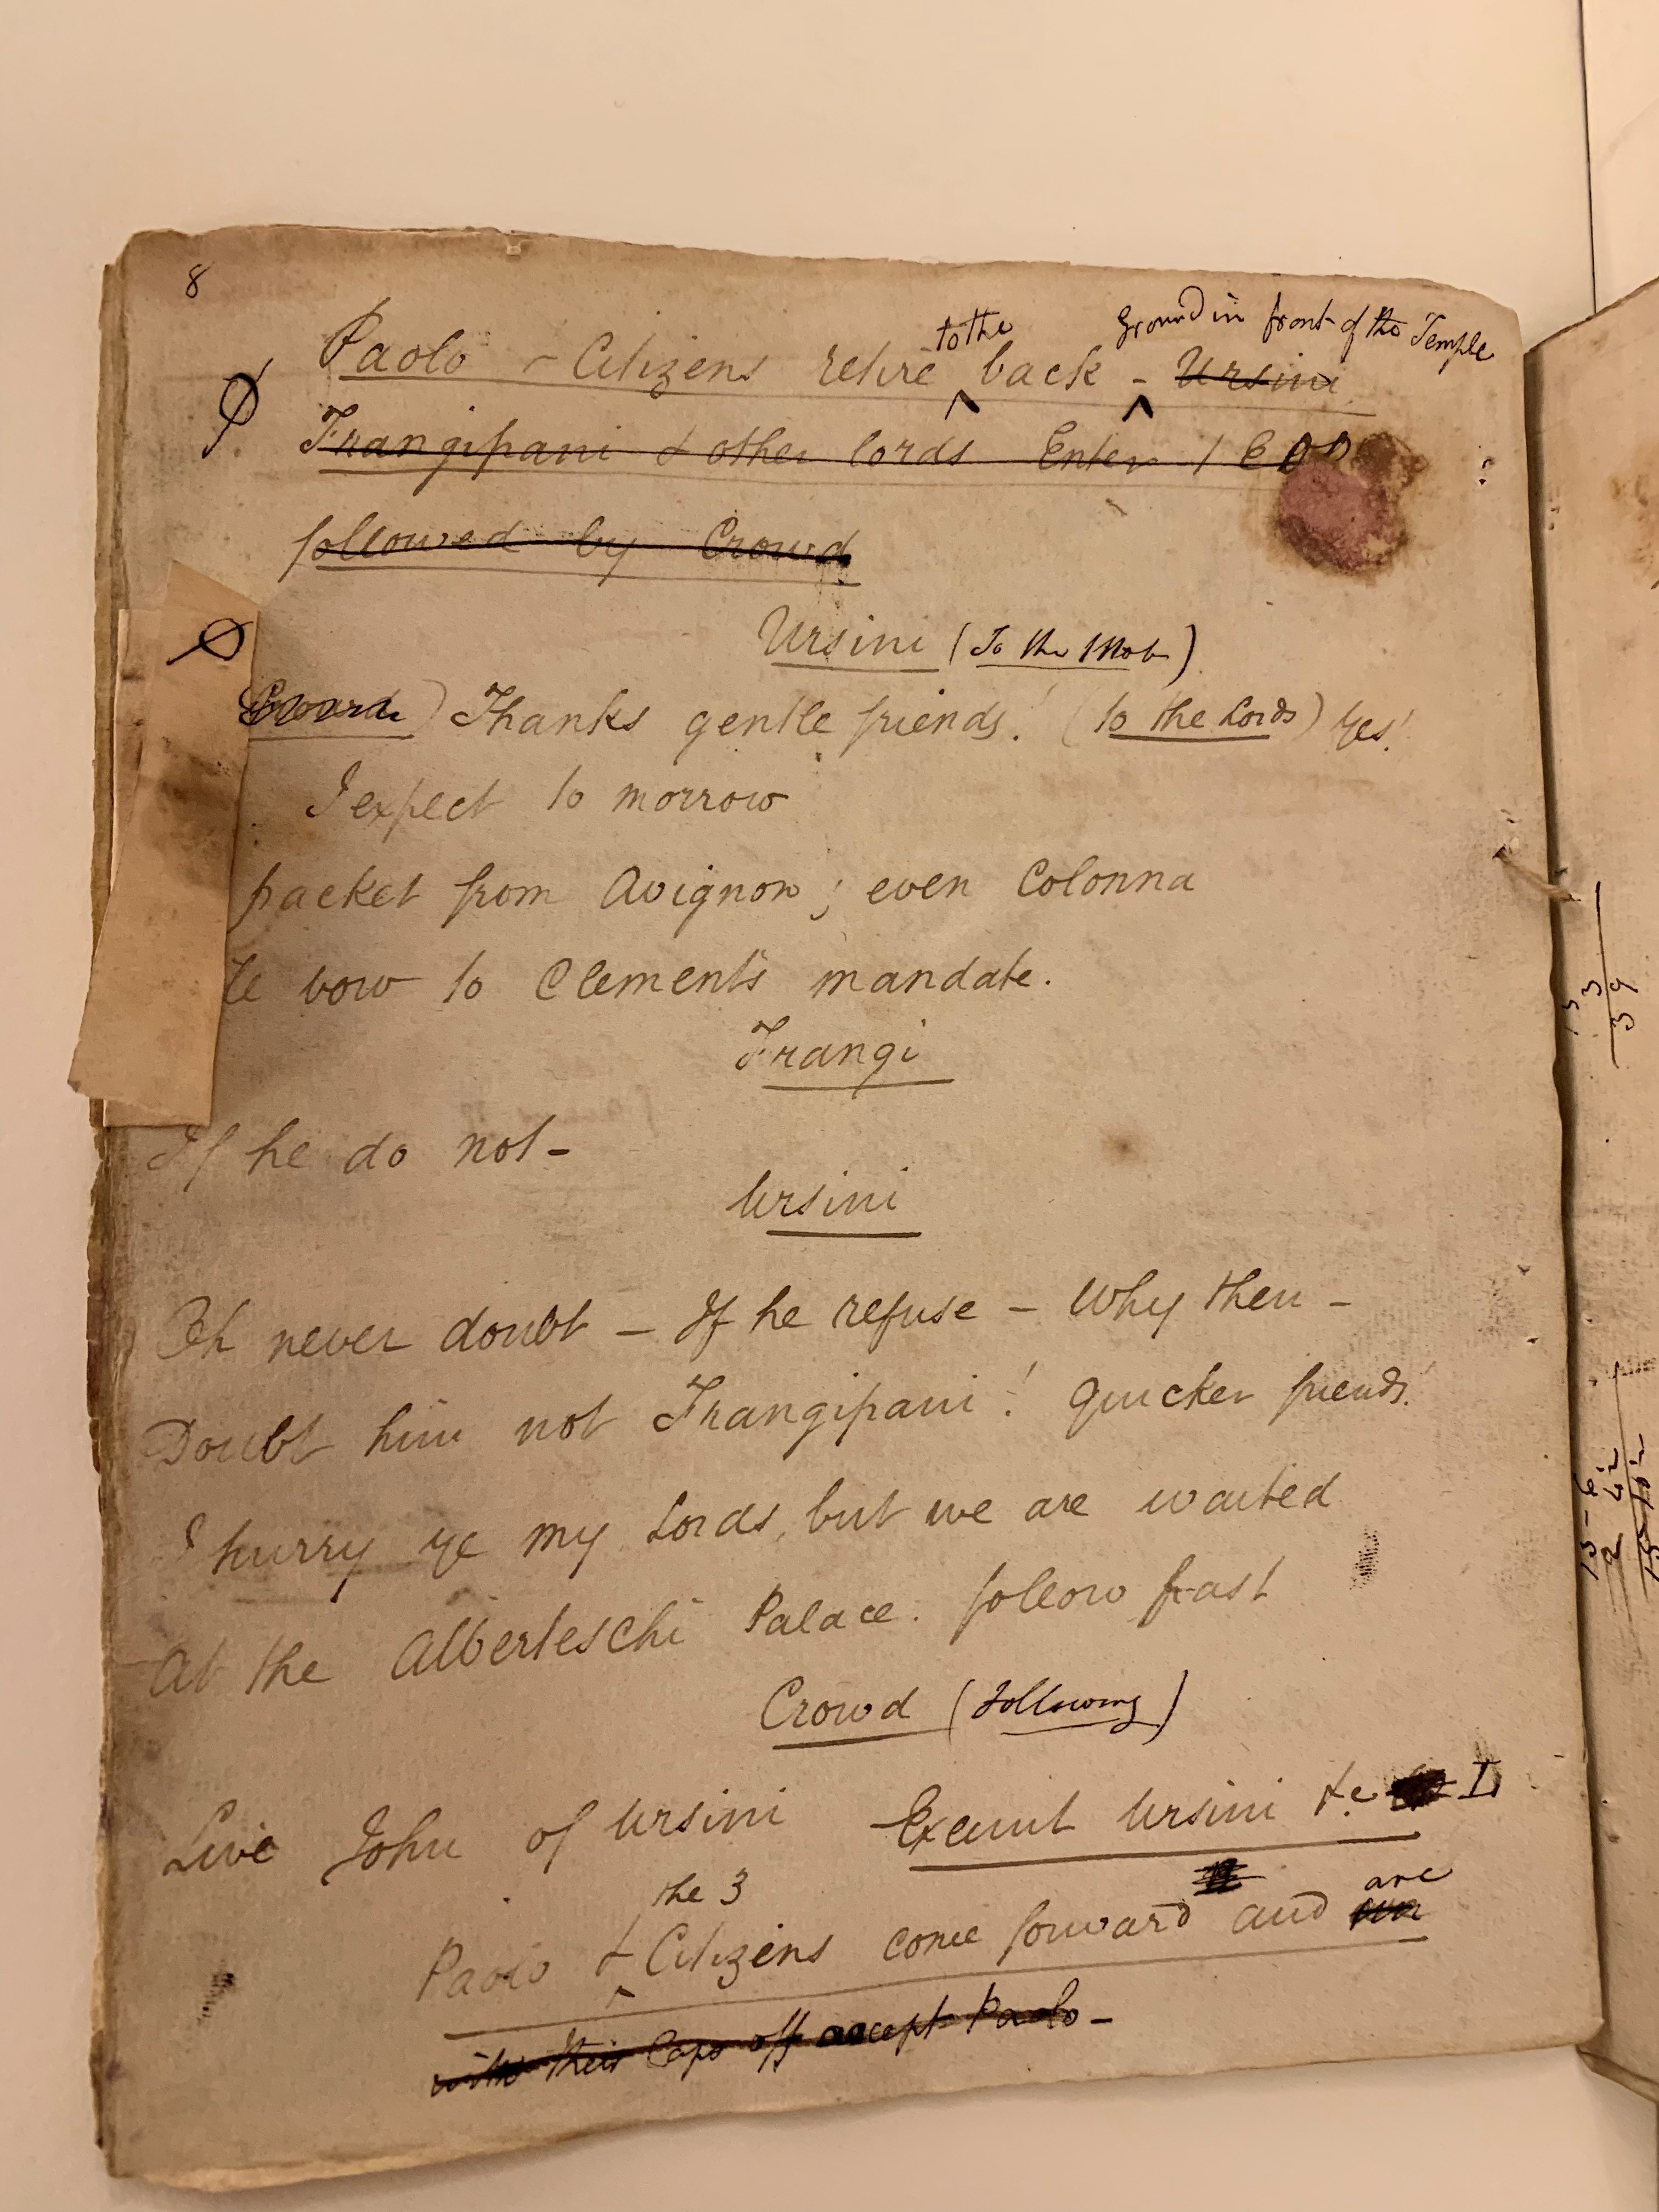 8
to the ground in front of the Temple
Paolo & Citizens retire back - Ursini
Frangipani & other lords Enter
followed by Crowd
Ursini (To the Mob)
) Thanks gentle friends! (to the Lords) Yes!
I expect to morrow
packet from Avignon; even Colonna
bow to Clement's mandate.
Frangi
If he do not -
Ursini
Oh never doubt - If he refuse - Why then -
Doubt him not Frangipani! Quicker friends!
I hurry ye my Lords, but we are waited
At the Alberteschi Palace. follow fast
Crowd (following)
Live John of Ursini Exeunt Ursini &c L
the 3 are
Paolo & Citizens come forward and
with their Caps off except Paolo -
13
3
39